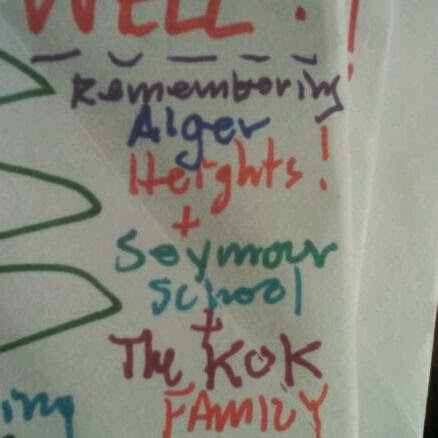 WELL!!
Remembering
Alger
Heights!
+
Seymour
School
+
The KOK
FAMILY
ing